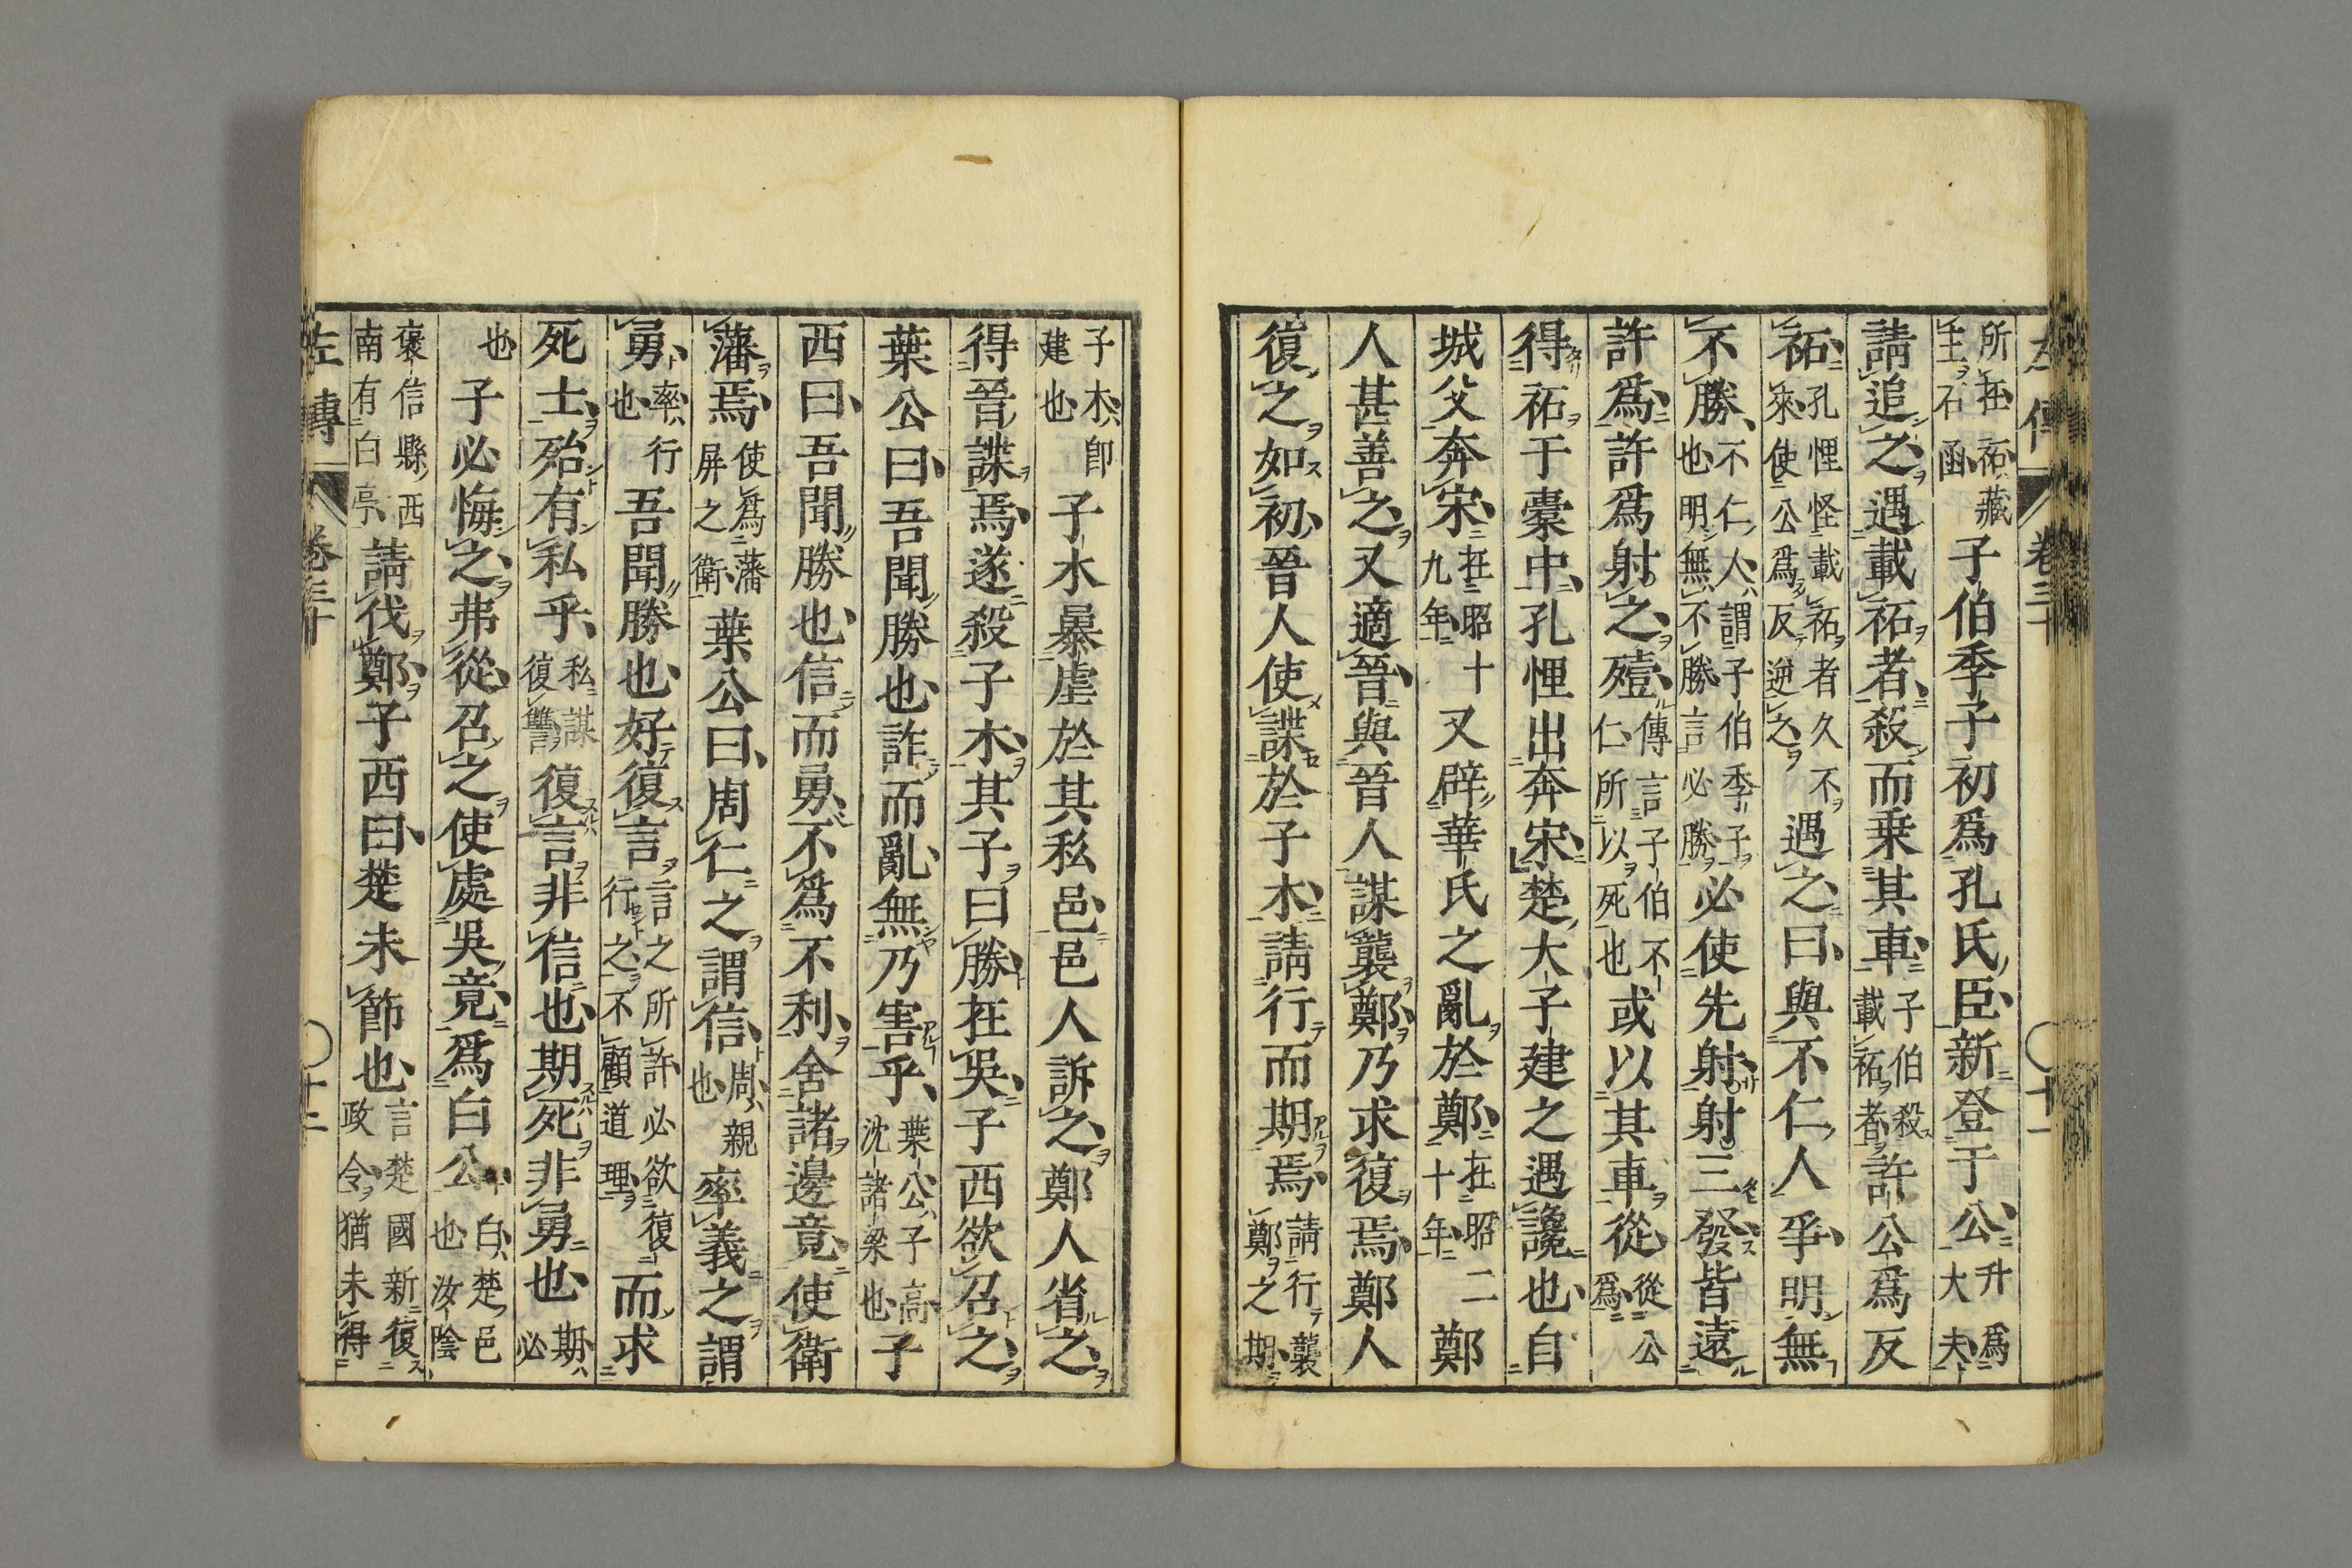 左傳 卷三十 ○十一
所在祏藏主石函子伯季子初爲孔氏臣新登于公升爲大夫
請追之遇載祏者殺而乗其車子伯殺載祏者許公爲反
祏孔悝怪載祏者久不來使公爲反逆之遇之曰與不仁人爭明無
不勝不仁人謂子伯季子也明無不勝言必勝必使先射射三發皆遠
許爲許爲射之殪傳言子伯不仁所以死也或以其車從從公爲
得祏于橐中孔悝出奔宋楚大子建之遇讒也自
城父奔宋在昭十九年又辟華氏之亂於鄭在昭二十年鄭
人甚善之又適晉與晉人謀襲鄭乃求復焉鄭人
復之如初晉人使諜於子木請行而期焉請行襲鄭之期
子木即建也子木暴虐於其私邑邑人訴之鄭人省之
得晉諜焉遂殺子木其子曰勝在吳子西欲召之
葉公曰吾聞勝也詐而亂無乃害乎葉公子高沈諸梁也子
西曰吾聞勝也信而勇不爲不利舍諸邊竟使衛
藩焉使爲藩屏之衛葉公曰周仁之謂信周親也率義之謂
勇率行也吾聞勝也好復言言之所許必欲復行之不顧道理而求
死士殆有私乎私謀復讐復言非信也期死非勇也期必
也子必悔之弗從召之使處吳竟爲白公白楚邑也汝陰
褒信縣西南有白亭請伐鄭子西曰楚未節也言楚國新復政令猶未得
左傳 卷三十 ○十二